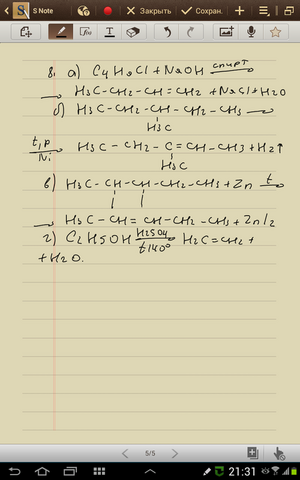 S Note
Закрыть
Сохран.
8. а) C4H9Cl + NaOH спирт
→ H3C-CH2-CH=CH2 + NaCl + H2O
б) H3C-CH2-CH-CH2-CH3 →
H3C
t,p
Ni
H3C-CH2-C=CH-CH3 + H2↑
H3C
в) H3C-CH-CH-CH2-CH3 + Zn t
I I
→ H3C-CH=CH-CH2-CH3 + ZnI2
г) C2H5OH H2SO4 H2C=CH2 +
t140°
+ H2O.
5/5
21:31